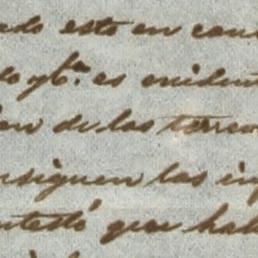 ado esto en con
do y 6.ª es eviden
on de las terce
nsiguen las in
ntestó que hab